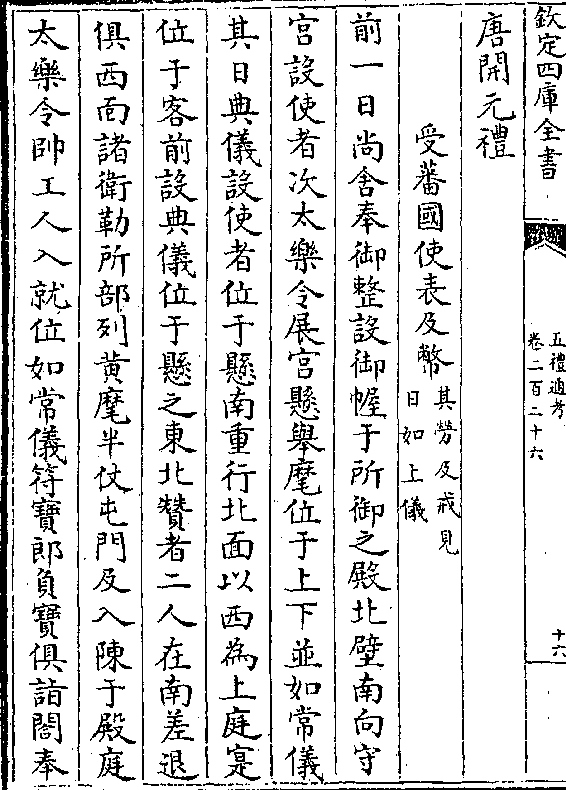 欽定四庫全書
五禮通考
卷二百二十六
十六
唐開元禮
受蕃國使表及幣其勞及戒見
日如上儀
前一日尚舍奉御整設御幄于所御之殿北壁南向守
宮設使者次太樂令展宮懸舉麾位于上下並如常儀
其日典儀設使者位于懸南重行北面以西為上庭寔
位于客前設典儀位于懸之東北贊者二人在南差退
俱西面諸衛勒所部列黃麾半仗屯門及入陳于殿庭
太樂令帥工人入就位如常儀符寶郎負寶俱詣閤奉